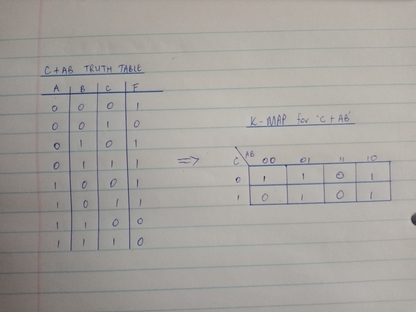 C + AB TRUTH TABLE
A B C F
0 0 0 1
0 0 1 0
0 1 0 1
0 1 1 1
1 0 0 1
1 0 1 1
1 1 0 0
1 1 1 0
⇒
K-MAP for 'C + AB'
C AB 00 01 11 10
0 1 1 0 1
1 0 1 0 1